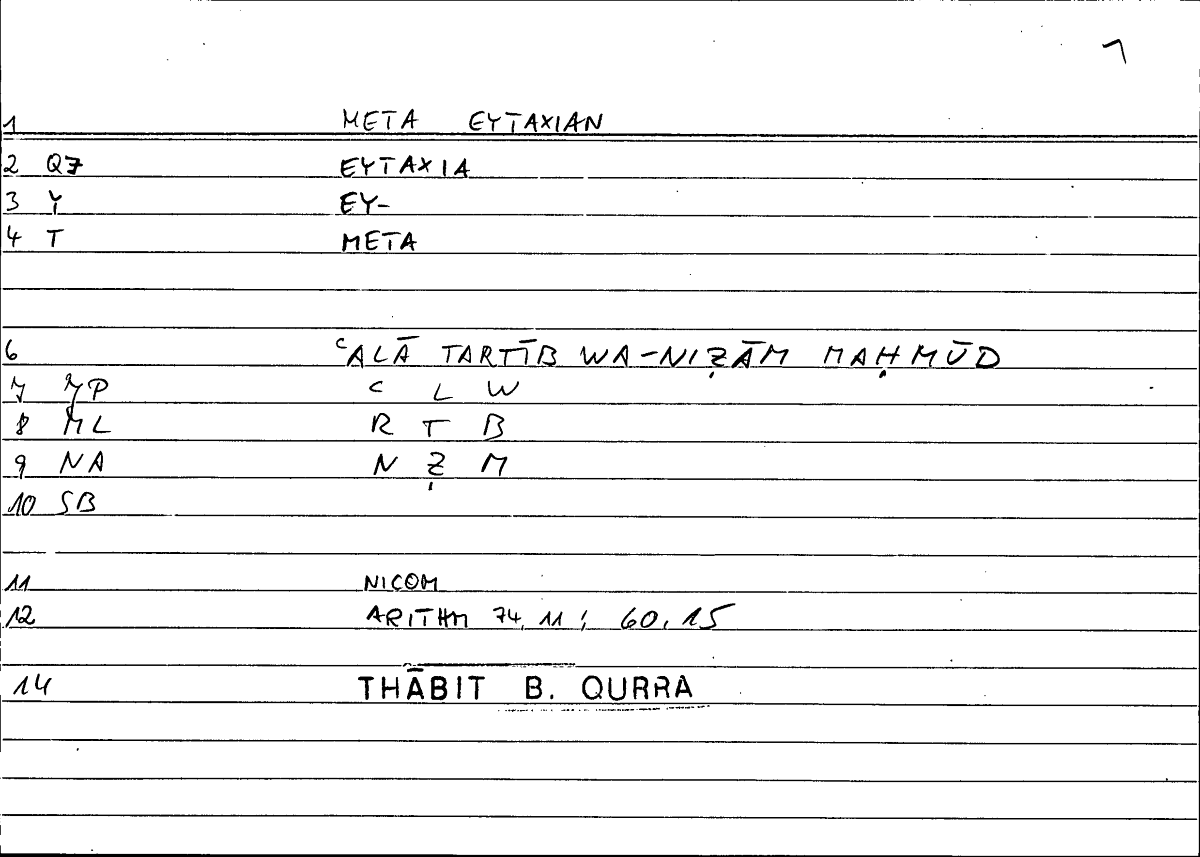 1
1 META EYTAXIAN
2 QZ EYTAXIA
3 Y EY-
4 T META
6 ʿALĀ TARTĪB WA-NIẒĀM MAḤMŪD
7 JP ʿ L W
8 ML R T B
9 NA N Ẓ M
10 SB
11 NICOM
12 ARITHM 74, 11 ; 60, 15
14 THĀBIT B. QURRA